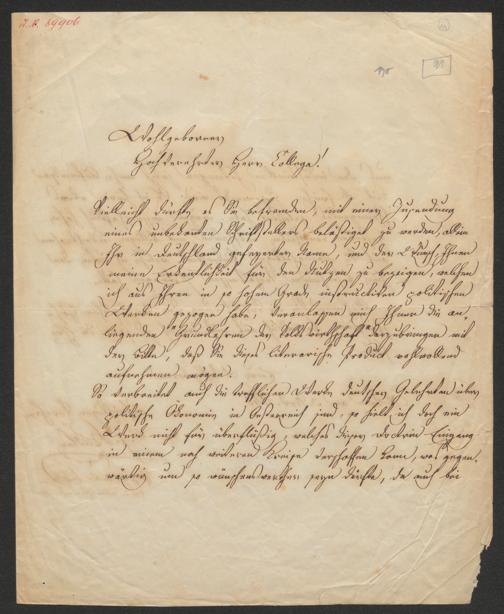 I. N. 69906
91
Wohlgeboren
Hochverehrter Herr College!
Vielleicht dürfte es Sie befremden, mit einer Zusendung
eines unbekannten Schriftstellers belästiget zu werden, allein
Ihr in Deutschland gefeyerter Name, und der Wunsch Ihnen
meine Erkenntlichkeit für den Nutzen zu bezeigen, welchen
ich aus Ihren in so hohem Grade instructiven politischen
Werken gezogen habe, veranlassen mich Ihnen die an-
liegenden "Grundlehren der Volkswirthschaft" zu übersenden mit
der Bitte, daß Sie dieses literarische Produkt wohlwollend
aufnehmen mögen.
So verbreitet auch die trefflichen Werke deutscher Gelehrten über
politische Ökonomie in Oesterreich sind, so hielt ich doch ein
Werk nicht für überflüssig, welches dieser Doctrin Eingang
in einem noch weiteren Kreise verschaffen kann, was gegen-
wärtig um so wünschenswerther seyn dürfte, da auch bei